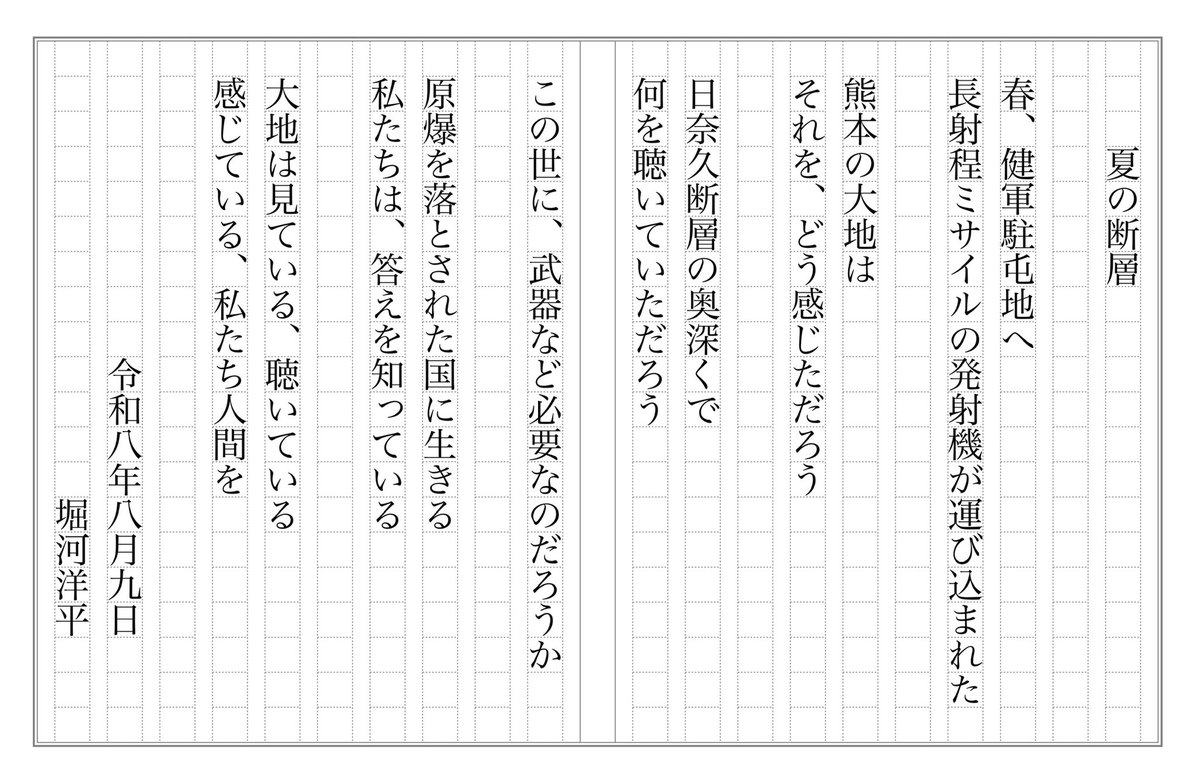 夏の断層
春、健軍駐屯地へ
長射程ミサイルの発射機が運び込まれた
熊本の大地は
それを、どう感じただろう
日奈久断層の奥深くで
何を聴いていただろう
この世に、武器など必要なのだろうか
原爆を落とされた国に生きる
私たちは、答えを知っている
大地は見ている、聴いている
感じている、私たち人間を
令和八年八月九日
堀河洋平